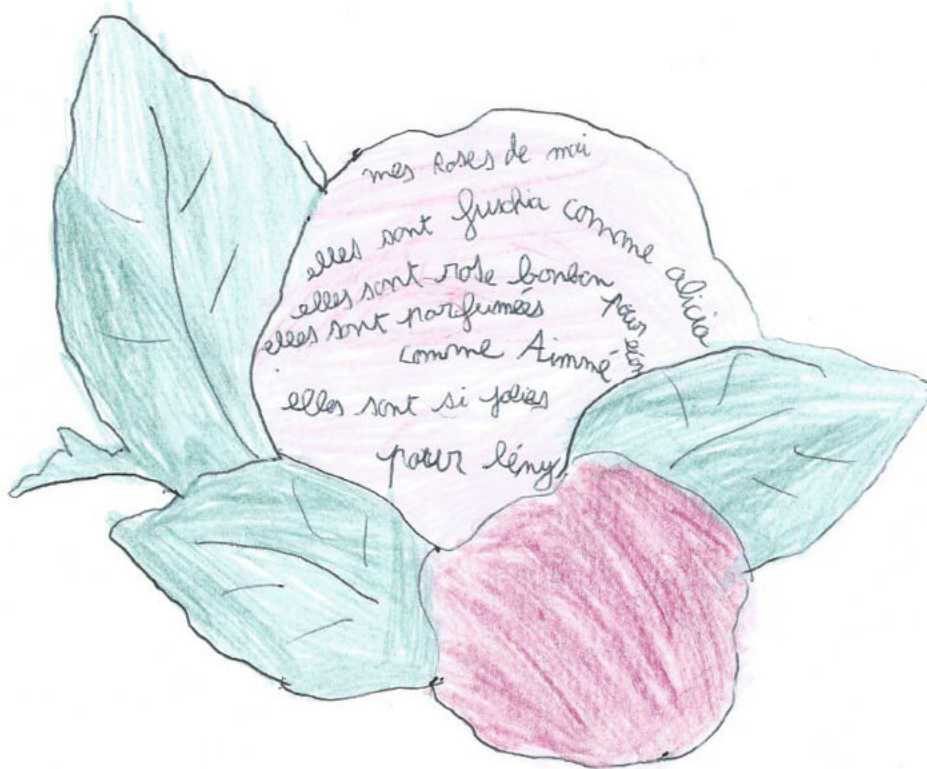 mes Roses de mai
elles sont fuschia comme alicia
elles sont rose bonbon pour léon
elles sont parfumées
comme Aimmé
elles sont si jolies
pour lény